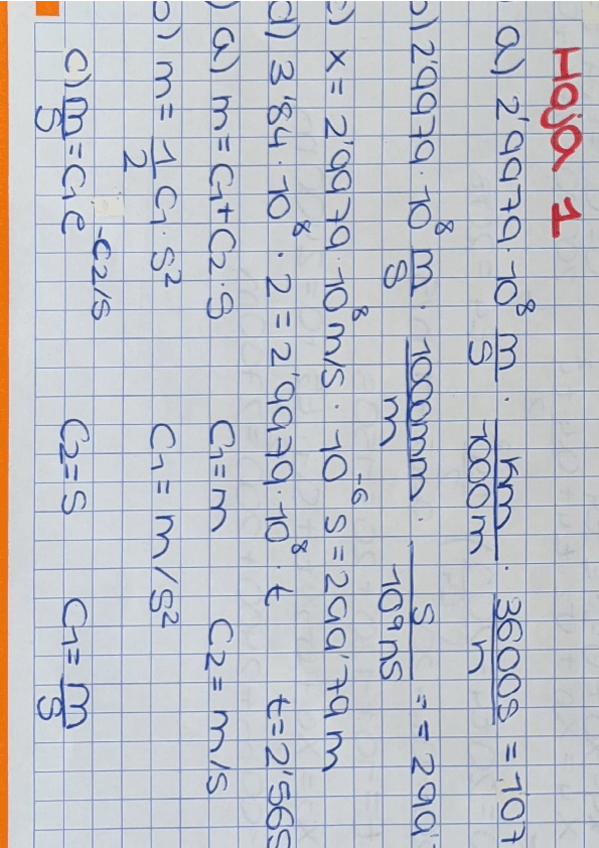 Hoja 1
a) 2'9979·10⁸ m/s · km/1000m · 3600s/h = 107
b) 2'9979·10⁸ m/s · 1000mm/m · s/10⁹ns = = 299'
c) x = 2'9979·10⁸ m/s · 10⁻⁶ s = 299'79 m
d) 3'84·10⁸ · 2 = 2'9979·10⁸ · t t = 2'56s
) a) m = C₁ + C₂·s C₁ = m C₂ = m/s
b) m = 1/2 C₁·s² C₁ = m/s²
c) m/s = C₁e^(-C₂/s) C₂ = s C₁ = m/s